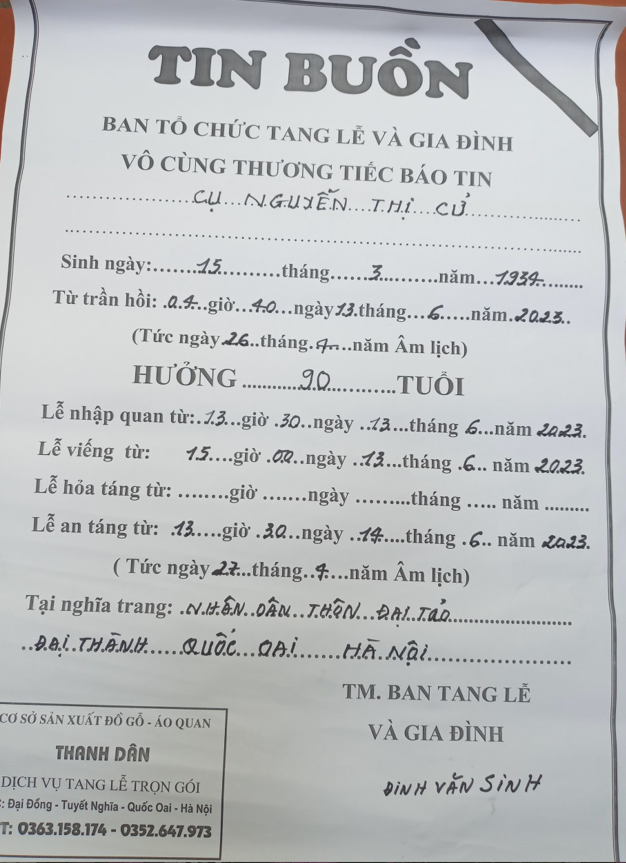 TIN BUỒN
BAN TỔ CHỨC TANG LỄ VÀ GIA ĐÌNH
VÔ CÙNG THƯƠNG TIẾC BÁO TIN
CỤ NGUYỄN THỊ CỦ
Sinh ngày:.......15..........tháng......3..........năm...1934.......
Từ trần hồi: .04..giờ...40...ngày 13.tháng...6.....năm.2023..
(Tức ngày 26..tháng.4....năm Âm lịch)
HƯỞNG ..........90...........TUỔI
Lễ nhập quan từ:..13...giờ .30..ngày ..13...tháng 6...năm 2023.
Lễ viếng từ: 15....giờ .00..ngày ..13...tháng .6.. năm 2023.
Lễ hỏa táng từ: ........giờ .......ngày .........tháng ..... năm .........
Lễ an táng từ: .13....giờ .30..ngày ..14....tháng .6.. năm 2023.
( Tức ngày 27...tháng..4....năm Âm lịch)
Tại nghĩa trang: .NHÂN DÂN THÔN ĐẠI TẢO
ĐẠI THÀNH QUỐC OAI HÀ NỘI
TM. BAN TANG LỄ
VÀ GIA ĐÌNH
ĐINH VĂN SINH
CƠ SỞ SẢN XUẤT ĐỒ GỖ - ÁO QUAN
THANH DÂN
DỊCH VỤ TANG LỄ TRỌN GÓI
C: Đại Đồng - Tuyết Nghĩa - Quốc Oai - Hà Nội
T: 0363.158.174 - 0352.647.973